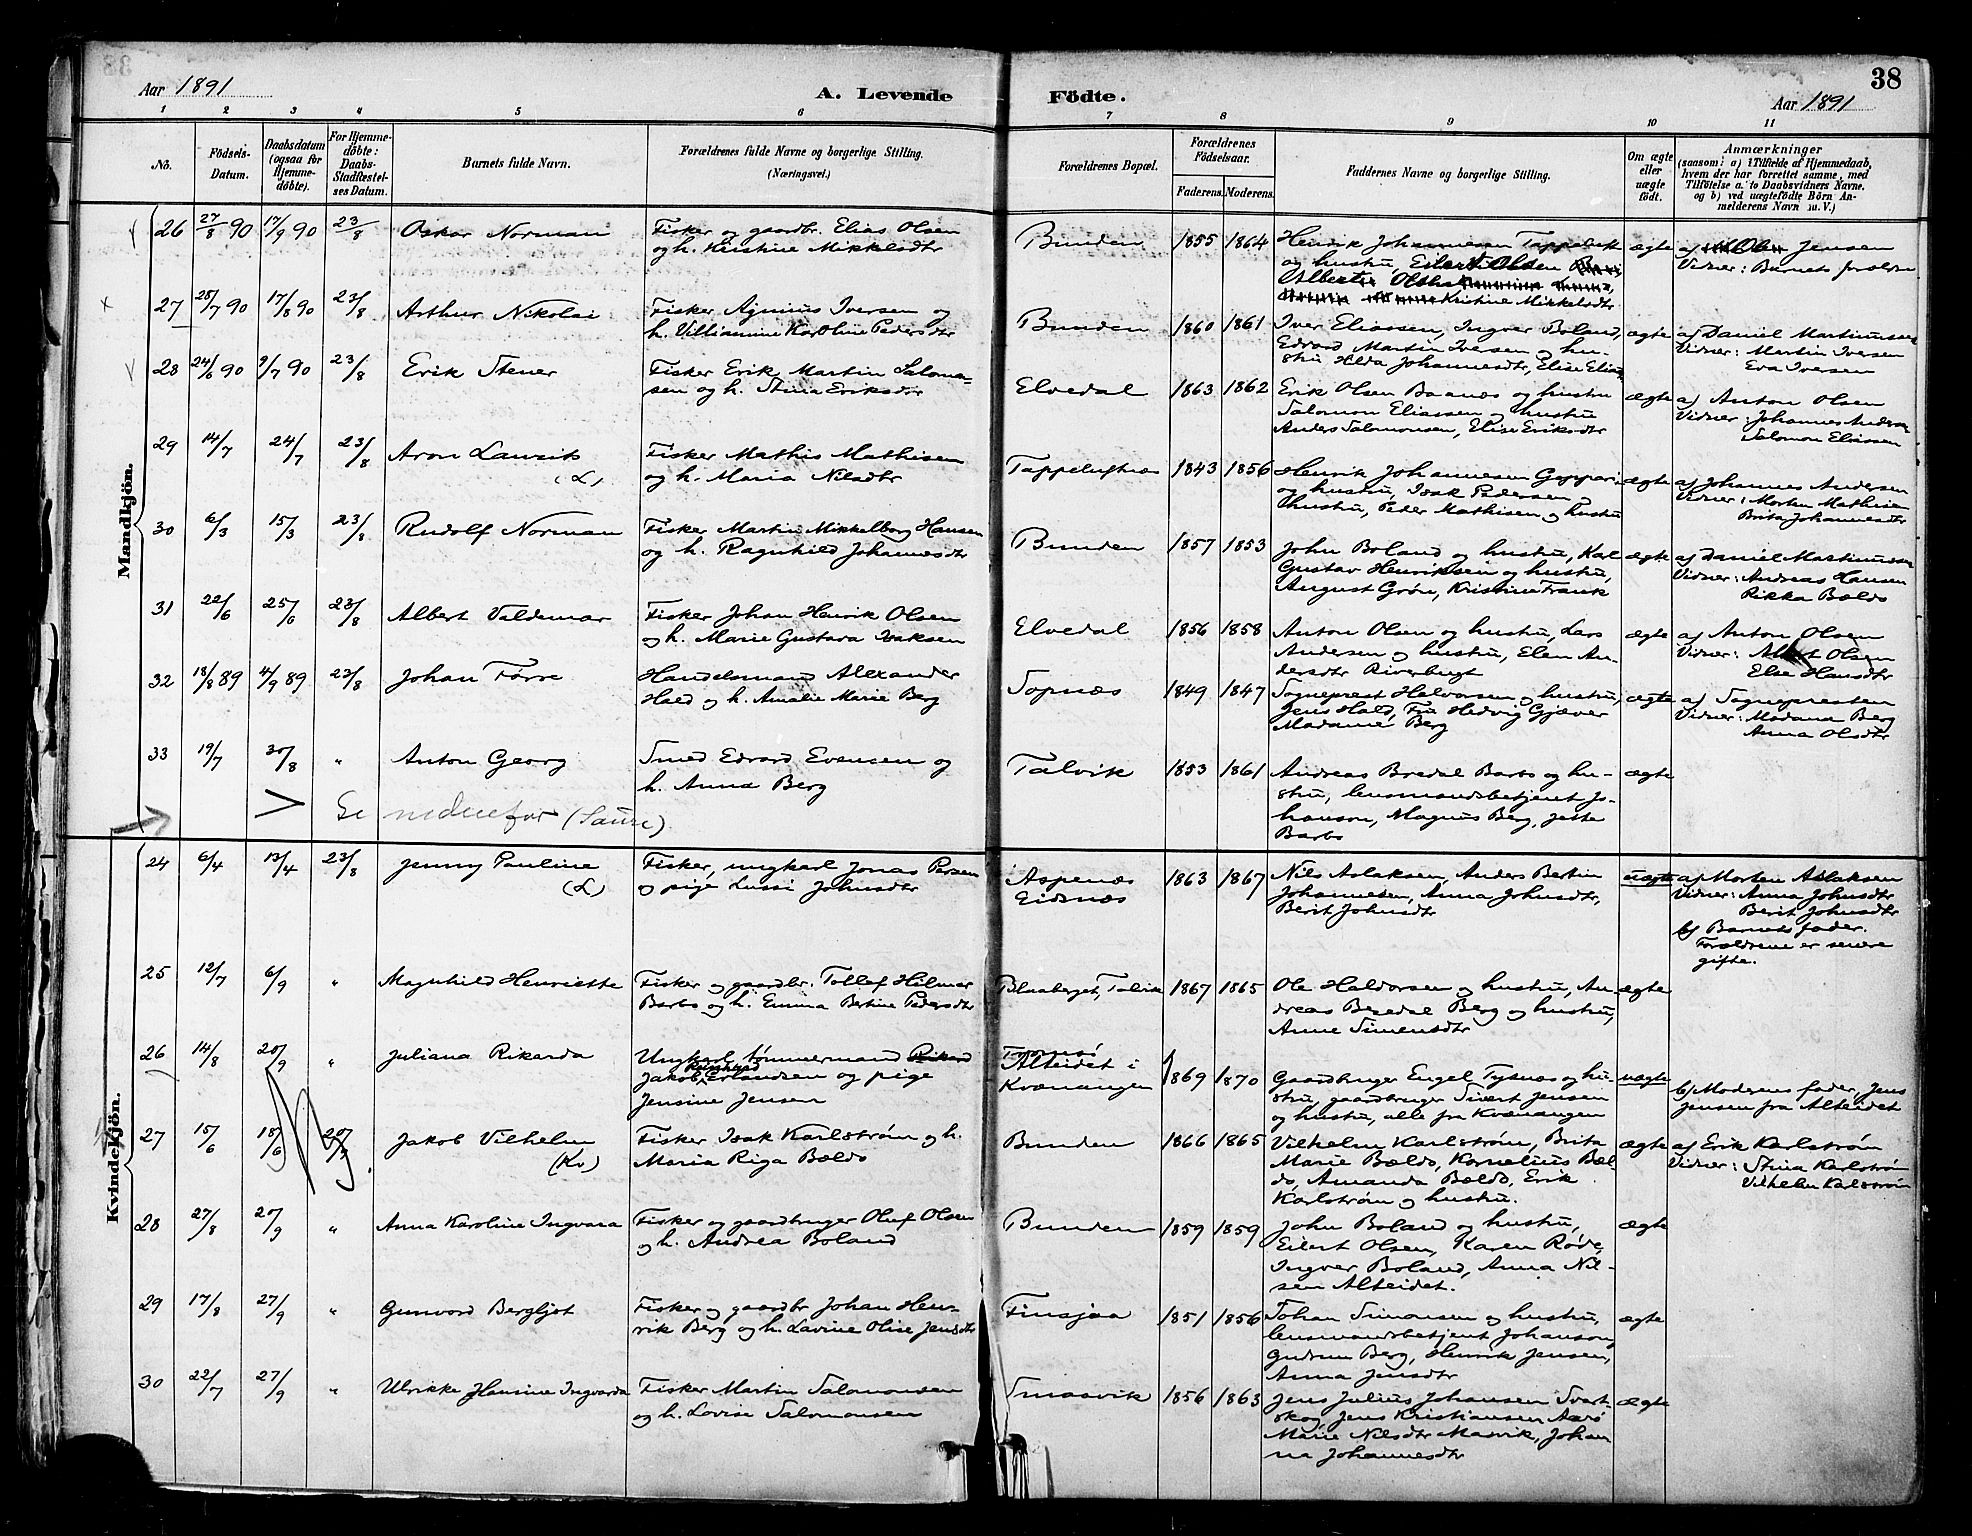 38
Aar 1891
A. Levende Födte.
Aar 1891
1 2 3 4 5 6 7 8 9 10 11
No.
Födsels-Datum.
Daabsdatum (ogsaa for Hjemme-döbte).
For Hjemme-döbte: Daabs-Stadfæstel-ses Datum.
Barnets fulde Navn.
Forældrenes fulde Navne og borgerlige Stilling.
(Næringsvei.)
Forældrenes Bopæl.
Forældrenes Födselsaar.
Faderens. Moderens.
Faddernes Navne og borgerlige Stilling.
Om ægte eller uægte födt.
Anmærkninger
(saasom: a) i Tilfælde af Hjemmedaab,
hvem der har forrettet samme, med
Tilföielse a. to Daabsvidners Navne.
og b) ved uægtefödte Börn An-
melderens Navn m. V.)
Mandkjön.
26 27/8 90 17/9 90 23/8 Oskar Norman
Fisker og gaardbr. Elias Olsen
og h. Kristine Mikkelsdtr
Bunden 1855 1864
Henrik Johannesen
og hustru, Eilert Olsen
Kristine Mikkelsdtr
ægte
a) Jensen
Vidner: Barnets forældre
27 28/7 90 17/8 90 23/8 Arthur Nikolai
Fisker Agnius Iversen og
h. Villiamine Karoline Pedersdtr
Bunden 1860 1861
Iver Eliassen, Ingver Boland,
Edvard Martin Iversen og hu-
stru Hilda Johannesdtr, Elise Elias
ægte
a) Daniel Martinussen
Vidner: Martin Iversen
Eva Iversen
28 24/6 90 9/7 90 23/8 Erik Stener
Fisker Erik Martin Salomo-
sen og h. Stina Eriksdtr
Elvedal 1863 1862
Erik Olsen Baanæs og hustru
Salomon Eliassen og hustru
Anders Salomonsen, Elise Eriksdtr
ægte
a) Anton Olsen
Vidner: Johannes Andersen
Salomon Eliassen
29 14/7 24/7 23/8 Aron Lausik
(L)
Fisker Mathis Mathisen
og h. Maria Nilsdtr
Tappeluftnæs 1843 1856
Henrik Johannesen
og hustru, Isak Pedersen og
hustru, Peder Mathisen og hustru
ægte
a) Johannes Andersen
Vidner: Morten Mathisen
Brita Johannesdtr
30 6/3 15/3 23/8 Rudolf Norman
Fisker Martin Mikkelborg Hansen
og h. Ragnhild Johannesdtr
Bunden 1857 1853
John Boland og hustru, Karl
Gustav Henriksen og hustru,
August Grön, Kristine Frank
ægte
a) Daniel Martinussen
Vidner: Andreas Hansen
Rikka Bælds
31 22/6 25/6 23/8 Albert Valdemar
Fisker Johan Henrik Olsen
og h. Marie Gustava Isaksen
Elvedal 1856 1858
Anton Olsen og hustru, Lars
Andersen og hustru, Elen An-
dersdtr Riverbugt
ægte
a) Anton Olsen
Vidner: Albert Olsen
Else Hansdtr
32 18/8 89 4/9 89 23/8 Johan Förre
Handelsmand Alexander
Hald og h. Amalie Marie Berg
Sopnæs 1849 1847
Sogneprest Halvorsen og hustru,
Jens Hald, Fru Hedvig Gjæver
Madame Berg
ægte
a) Sognepresten
Vidner: Madame Berg
Anna Olsdtr
33 19/7 30/8 " Anton Georg
Smed Edvard Evensen og
h. Anna Berg
Talvik 1853 1861
Andreas Bredal Barbo og hu-
stru, lensmandsbetjent Jo-
hanson, Magnus Berg, Jette
Barbo
ægte
> Se nedenfor
Kvindekjön.
24 6/4 13/4 23/8 Jenny Pauline
(L)
Fisker, ungkarl Jonas Persen
og pige Lussi Johnsdtr
Aspenæs
Eidsnæs
1863 1867
Nils Aslaksen, Anders Bertin
Johannesen, Anna Johnsdtr,
Berit Johnsdtr
uægte
a) Morten Aslaksen
Vidner: Anna Johnsdtr
Berit Johnsdtr
b) Barnets fader.
Forældrene er senere
gifte.
25 12/7 6/9 " Magnhild Henriette
Fisker og gaardbr. Tollef Hilmar
Barbo og h. Emma Bertine Pedersdtr
Talvik 1867 1865
Ole Haldorsen og hustru, An-
dreas Bredal Berg og hustru,
Anne Simensdtr
ægte
26 14/8 20/9 " Juliana Rikarda
Ungkarl tömmermand Rikard
Jakob Erlandsen og pige
Jensine Jensen
Alteidet i
Kvænangen
1869 1870
Gaardbruger Engel Tysnæs og hu-
stru, gaardbruger Sivert Jensen
og hustru, alle fra Kvænangen
uægte
b) Moderens fader, Jens
Jensen fra Alteidet
27 15/6 18/6 20/9 Jakob Vilhelm
(Kv)
Fisker Isak Karlström og h.
Maria Riga Bælds
Bunden 1866 1865
Vilhelm Karlström, Brita
Marie Bælds, Kornelius Bæl-
ds, Amanda Bælds, Erik
Karlström og hustru.
ægte
a) Erik Karlström
Vidner: Stina Karlström
Vilhelm Karlström
28 27/8 20/9 " Anna Karoline Ingvara
Fisker og gaardbruger Oluf Olsen
og h. Andrea Boland
Bunden 1859 1859
John Boland og hustru,
Eilert Olsen, Karen Röde,
Ingver Boland, Anna Nil-
sen Alteidet.
ægte
29 17/8 27/9 " Gunvord Bergljot
Fisker og gaardbr Johan Hen-
rik Berg og h. Lavine Olise Jensdtr
Finsjaa 1851 1856
Johan Simonsen og hustru,
lensmandsbetjent Johanson
Gudrun Berg, Henrik Jensen,
Anna Jensdtr
ægte
30 22/7 27/9 " Ulrikke Hansine Ingvarda
Fisker Martin Salomonsen
og h. Lovise Salomonsen
Smaavik 1856 1863
Jens Julius Johansen Svart-
skog, Jens Kristiansen Aarö
Marie Nilsdtr Masvik, Johan
na Johannesdtr
ægte